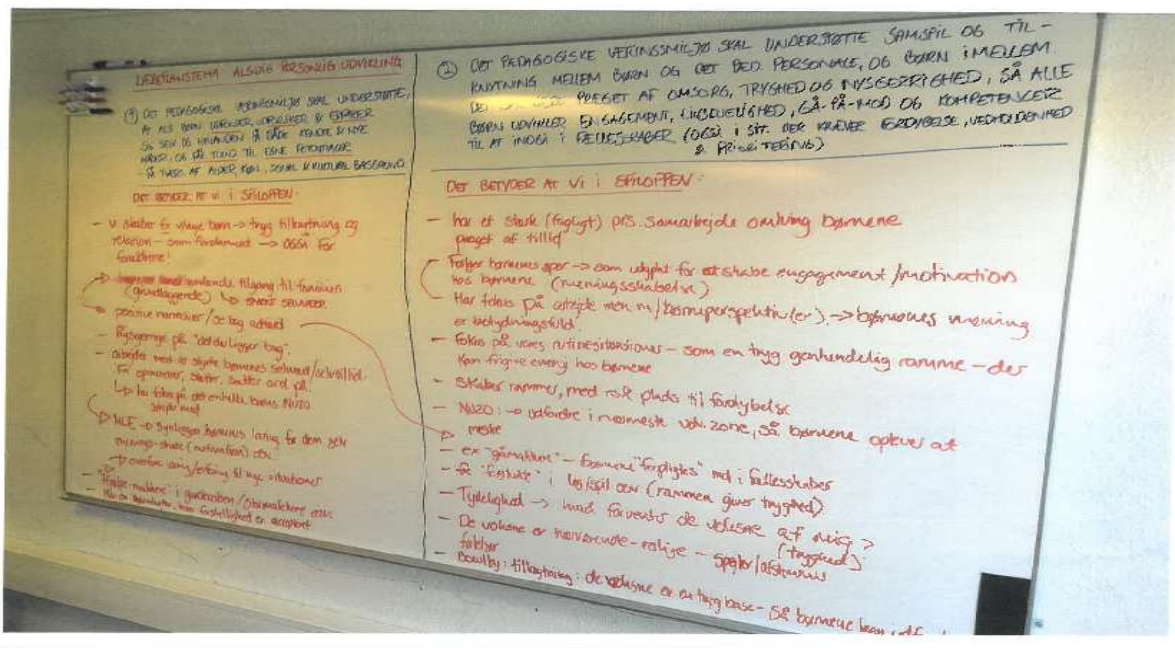 LÆREPLANSTEMA ALSIDIG PERSONLIG UDVIKLING
① DET PÆDAGOGISKE LÆRINGSMILJØ SKAL UNDERSTØTTE,
AT ALLE BØRN UDFOLDER, UDFORSKER & ERFARER
SIG SELV OG HINANDEN PÅ BÅDE KENDTE & NYE
MÅDER, OG FÅR TILLID TIL EGNE POTENTIALER
- PÅ TVÆRS AF ALDER, KØN, SOCIAL & KULTUREL BAGGRUND
DET BETYDER, AT VI I SPILOPPEN:
- Vi skaber for vores børn -> tryg tilknytning og
relation - som fundament -> OGSÅ for
forældrene!
anerkendende tilgang til
(grundlæggende)
positive narrativer / se bag adfærd
- Nysgerrige på "det der ligger bag".
- arbejder med at styrke børnenes selvværd/selvtillid.
sætter ord på.
har fokus på det enkelte barns NUZO
- synliggør børnenes læring for dem selv
(motivation) osv.
overføre læring/erfaring til nye situationer
i garderoben
forskellighed er accepteret
② DET PÆDAGOGISKE LÆRINGSMILJØ SKAL UNDERSTØTTE SAMSPIL OG TIL-
KNYTNING MELLEM BØRN OG DET PÆD. PERSONALE, OG BØRN IMELLEM.
PRÆGET AF OMSORG, TRYGHED OG NYSGERRIGHED, SÅ ALLE
BØRN UDVIKLER ENGAGEMENT, LIVSDUELIGHED, GÅ-PÅ-MOD OG KOMPETENCER
TIL AT INDGÅ I FÆLLESSKABER (OGSÅ I SIT. DER KRÆVER FORDYBELSE, VEDHOLDENHED
& PRIORITERING)
DET BETYDER AT VI I SPILOPPEN:
- har et stærk (fagligt) prs. samarbejde omkring børnene
præget af tillid
- Følger børnenes spor -> som udgpkt for at skabe engagement/motivation
hos børnene (meningsskabelse)
- Har fokus på at arbejde m/børneperspektiv(er) -> børnenes mening
er betydningsfuld.
- Fokus på vores rutinesituationer - som en tryg genkendelig ramme - der
kan frigive energi hos børnene
- Skaber rammer, med nok plads til fordybelse
- NUZO: -> udfordre i nærmeste udv. zone, så børnene oplever at
mestre
- ex "gåmakkere" - børnene "forpligtes" ind i fællesskaber
- i leg/spil osv (rammen giver tryghed)
- Tydelighed -> hvad forventer de voksne af mig?
(tryghed)
- De voksne er nærværende - rolige - spejler/afstemmer
følelser
- Bowlby: tilknytning: de voksne er en tryg base - så børnene kan